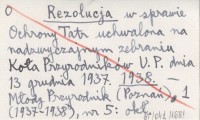 O Rezolucja w sprawie
Ochrony Tatr uchwalona na
nadzwyczajnym zebraniu
Koła Przyrodników U.P. dnia
13 grudnia 1937. 1938. —
Młody Przyrodnik (Poznań), 1
(1937-1938), nr 5: okł.